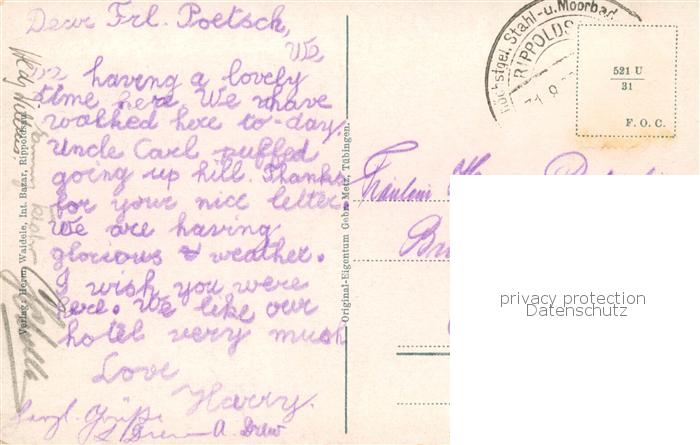 Dear Frl. Poetsch,
We
are having a lovely
time here. We have
walked here to-day.
Uncle Carl puffed
going up hill. Thanks
for your nice letter.
We are having
glorious weather.
I wish you were
here. We like our
hotel very much
Love
Harry.
Herzl. Grüße
A. Drew
Verlag: Herm. Waidele, Int. Bazar, Rippoldsau.
Original-Eigentum Gebr. Metz, Tübingen.
Höchstgel. Stahl-u. Moorbad
RIPPOLDS
521 U
31
F. O. C.
Fräulein
privacy protection
Datenschutz